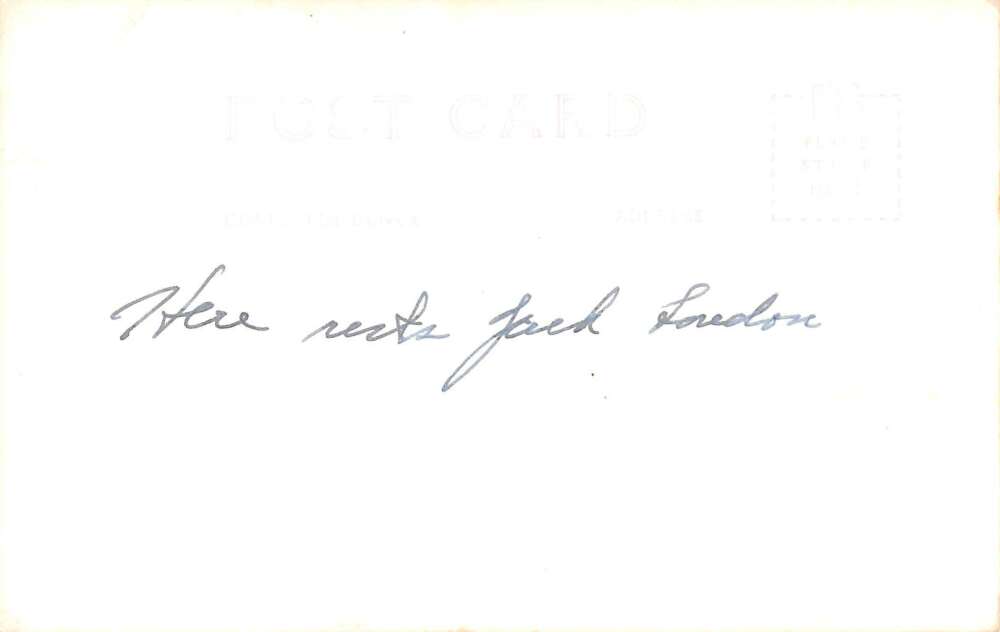 POST CARD
PLACE
STAMP
HERE
CORRESPONDENCE ADDRESS
Here rests Jack London